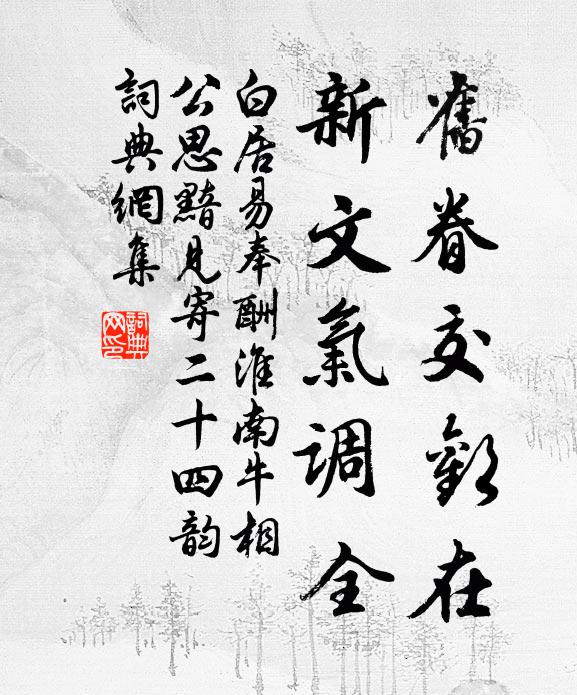 舊眷交歡在
新文氣調全
白居易奉酬淮南牛相
公思黯見寄二十四韵
詞典網集
詞典
网印